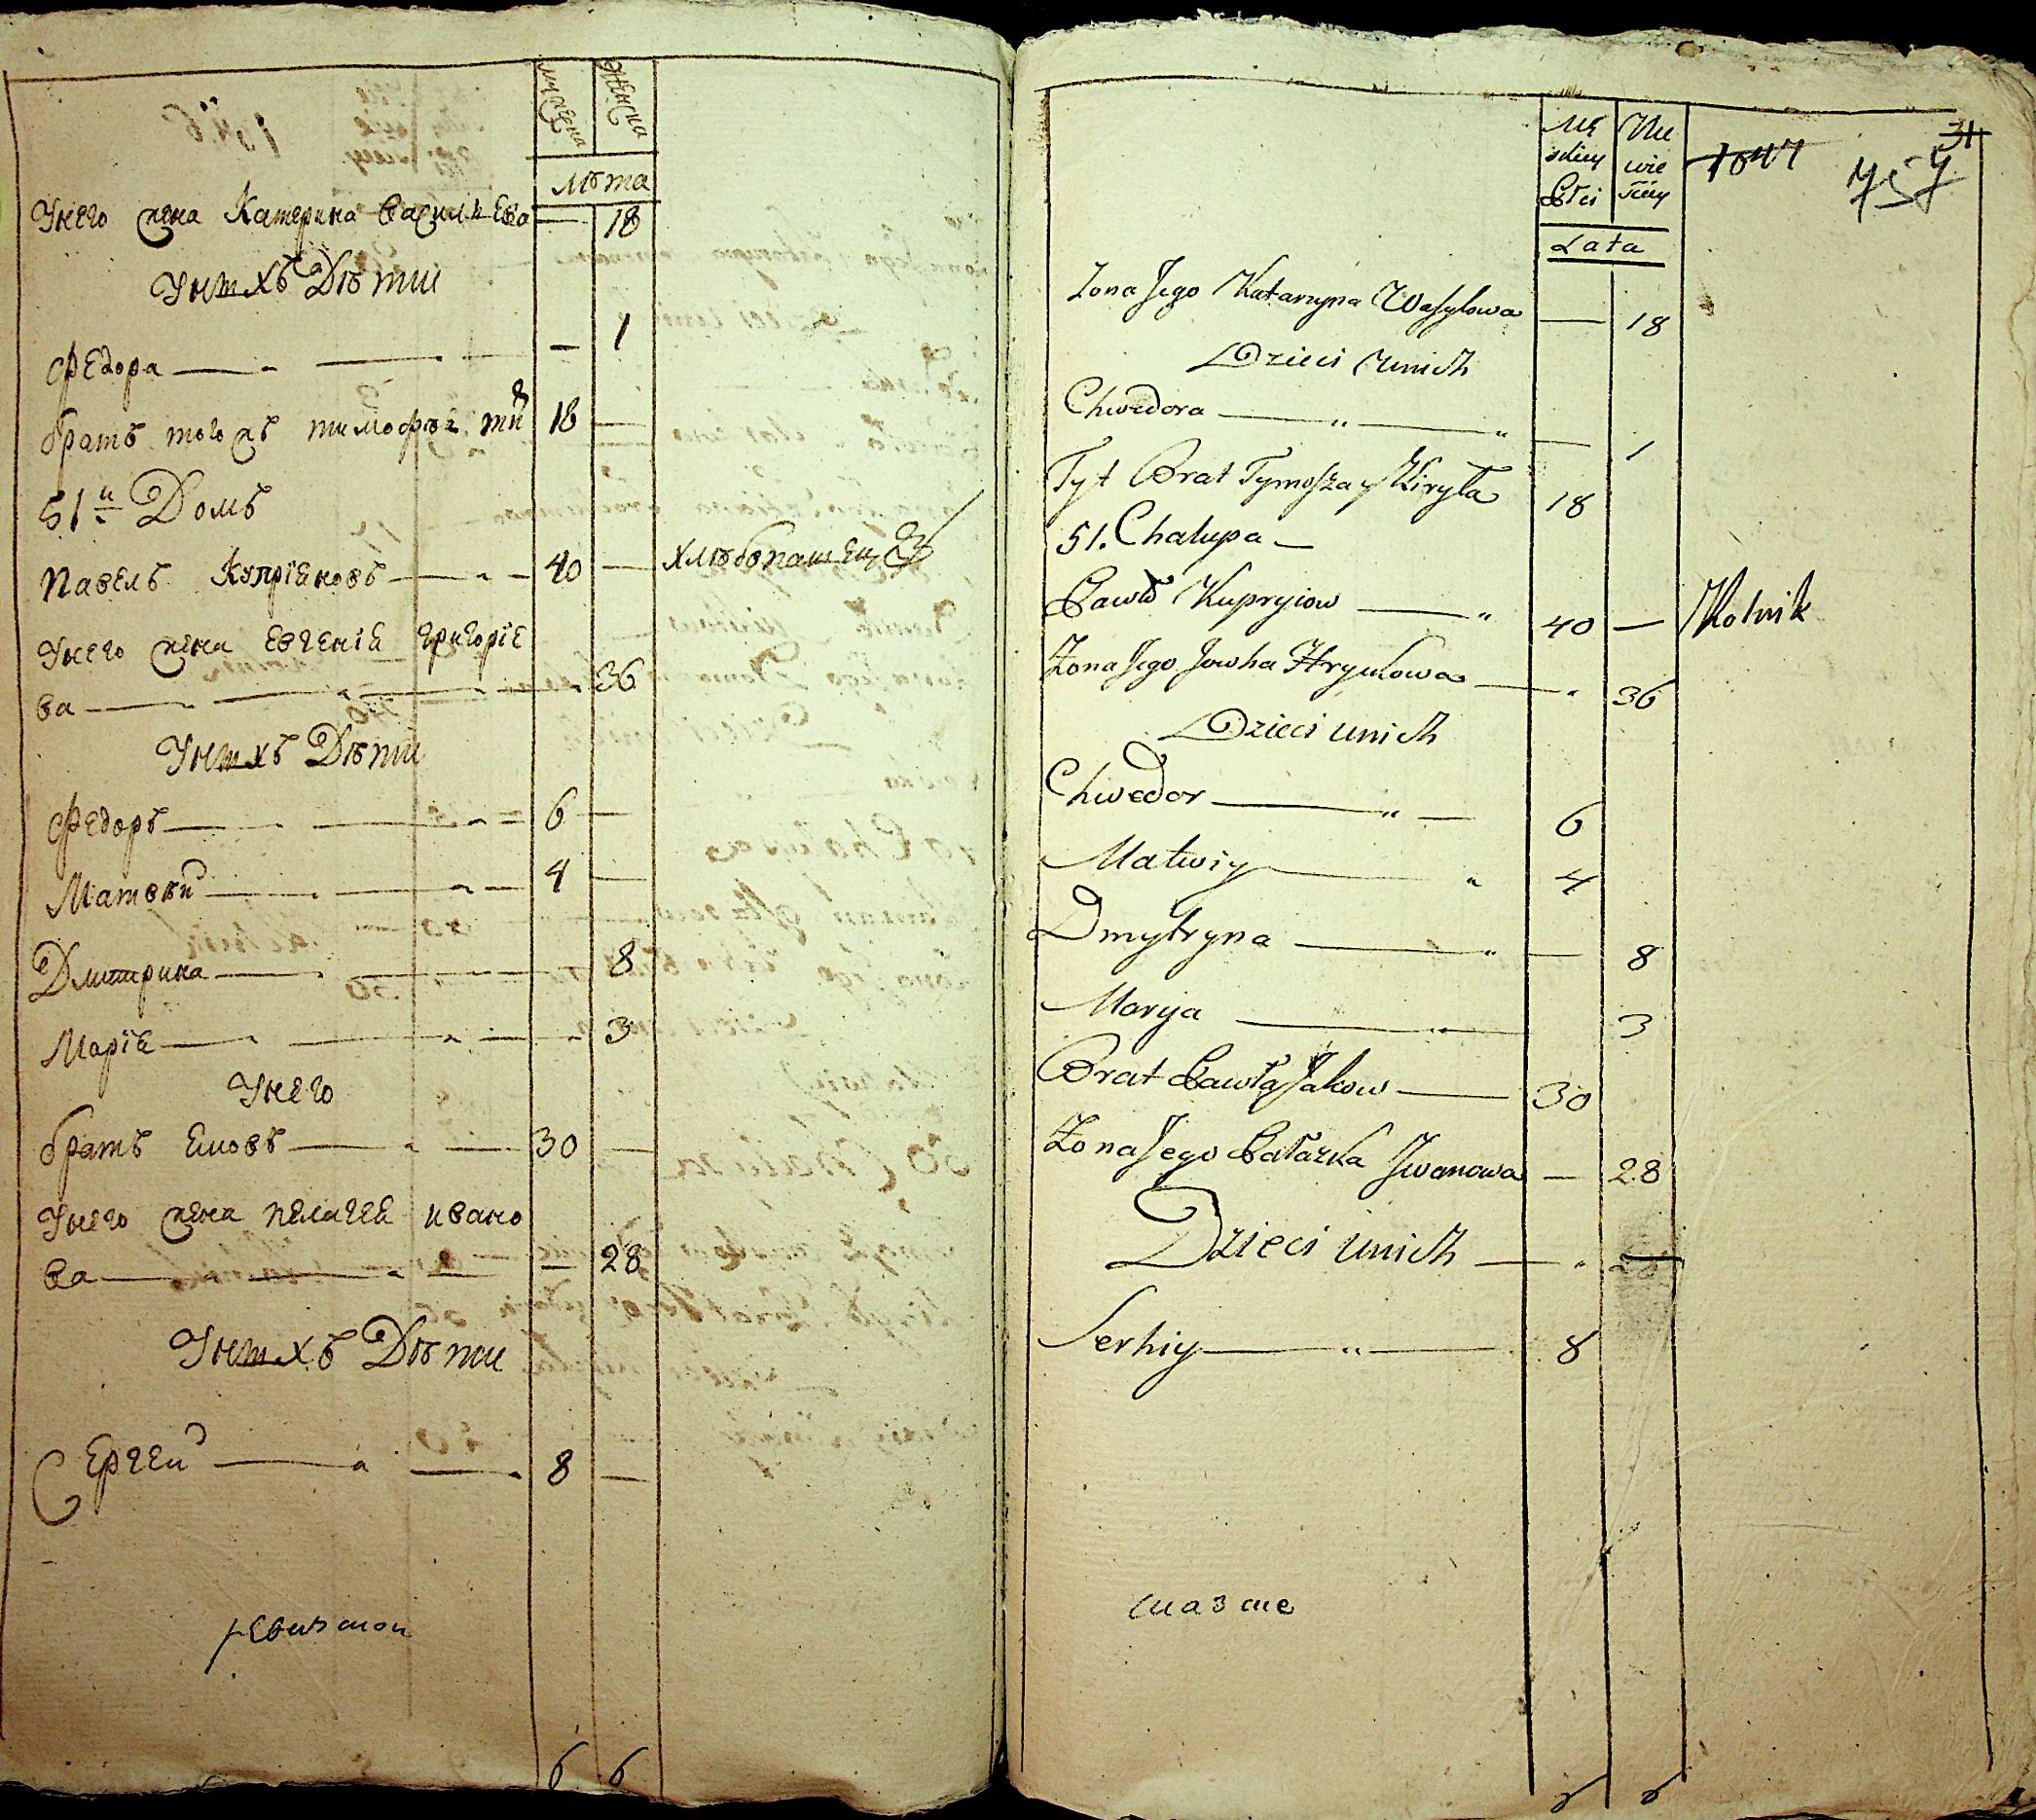 мужеска
Женска
1546
Лѣта
Унего жена Катерина Василиева — 18
Унихъ Дѣти
Федора — — — 1
братъ тогожъ тимофѣй 18 —
51й Домъ
Павелъ Куприяновъ — 40 — хлѣбопашец
Унего жена Евгения григорие
ва — — 36
Унихъ Дѣти
Федоръ — — 6 —
Матвѣй — — 4 —
Дмитрина — — 8
Мария — — 3
Унего
братъ Яковъ — 30 —
Унего жена пелагея ивано
ва — — 28
Унихъ Дѣти
Сергей — — 8 —
6 6
Mę
zkiey
Płci
Nie
wie
sciey
Lata
1847
31
757
Zona Jego Katarzyna Wasylowa — 18
Dzieci unich
Chwedora — — 1
Tyt Brat Tymosza y Kiryła 18
51. Chalupa —
Pawło Kupryiow — 40 — Rolnik
Zona Jego Jowha Hrycukowa — 36
Dzieci unich
Chwedor — 6
Matwiy — 4
Dmytryna — — 8
Marija — 3
Brat Pawła Jakow — 30
Zona Jego Pałazka Jwanowa — 28
Dzieci unich —
Serhiy — 8
6 6